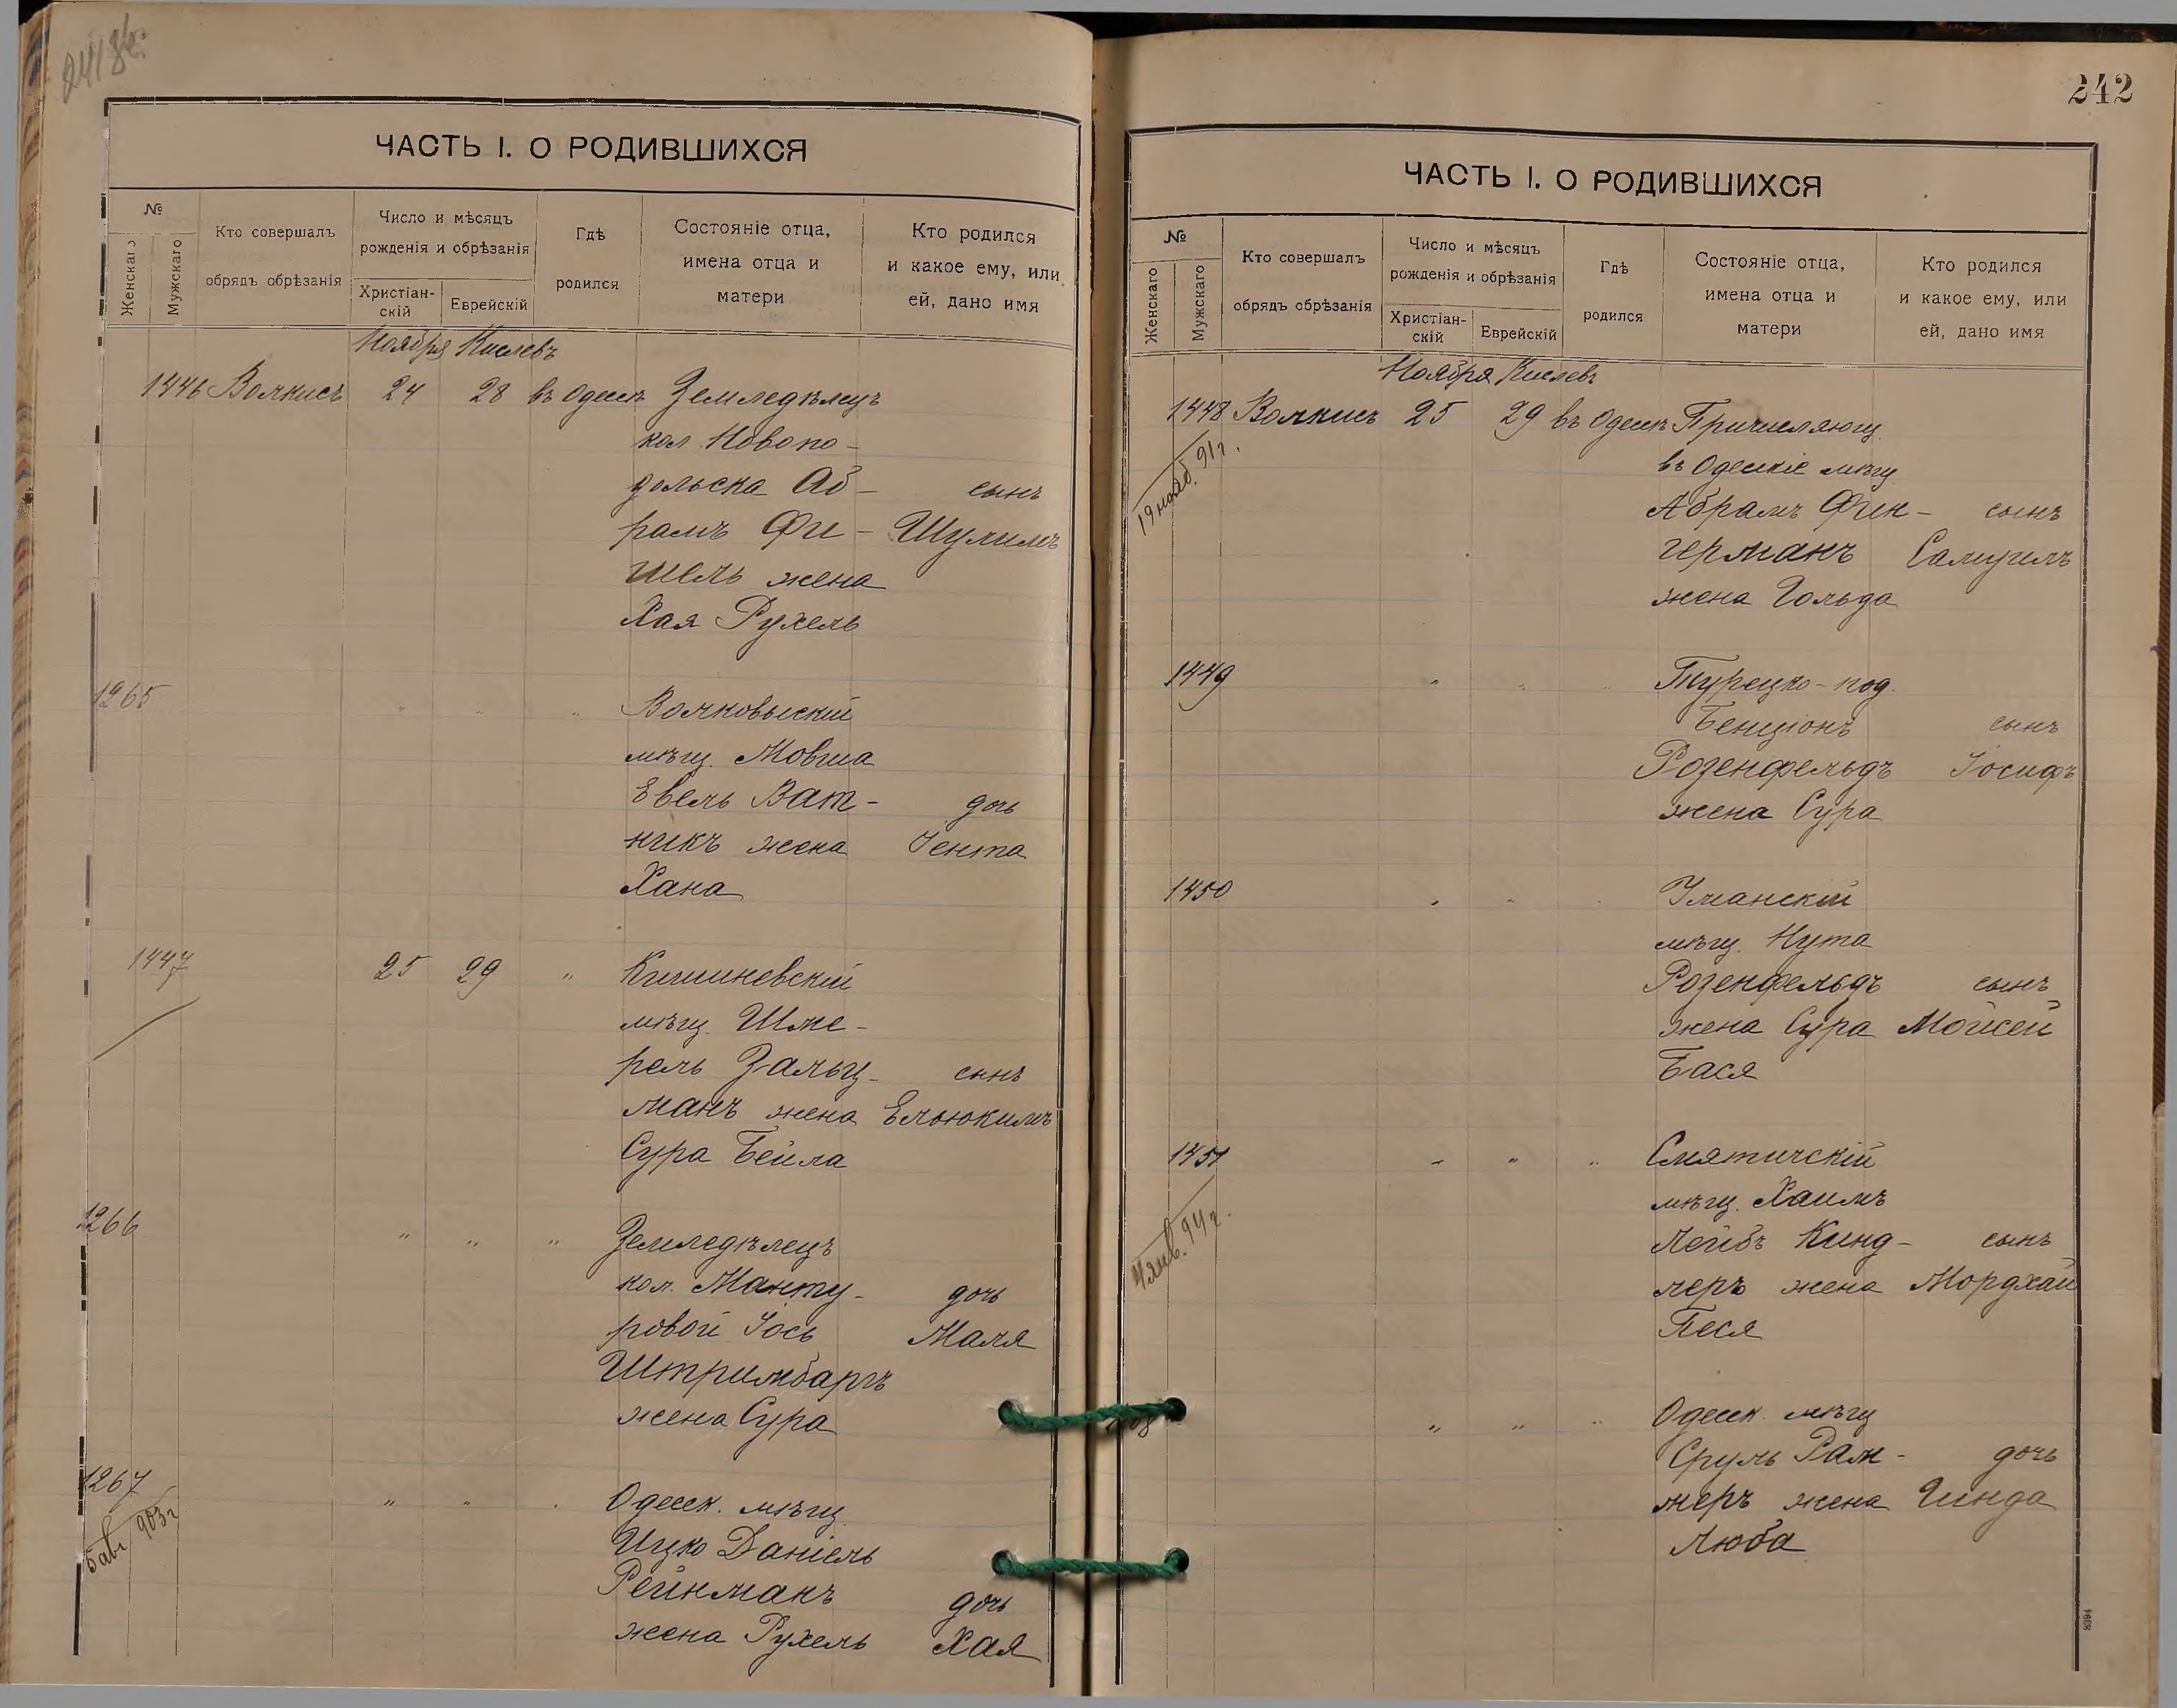 ЧАСТЬ I. О РОДИВШИХСЯ
№
Женскаго
Мужскаго
Кто совершалъ
обрядъ обрѣзанія
Число и мѣсяцъ
рожденія и обрѣзанія
Христіан-
скій
Еврейскій
Гдѣ
родился
Состояніе отца,
имена отца и
матери
Кто родился
и какое ему, или
ей, дано имя
Ноября Кислевъ
1446 Волкисъ 24 28 въ Одессѣ Земледѣлецъ
кол. Новопо-
дольска Аб- сынъ
рамъ Фи- Шулимъ
шель жена
Хая Рухель
1265 " " " Волковыскій
мѣщ. Мовша
Евель Ват- дочь
никъ жена Іента
Хана
1447 25 29 " Кишиневскій
мѣщ. Шме-
рель Зальц- сынъ
манъ жена Ельюкимъ
Сура Бейла
1266 " " " Земледѣлецъ
кол. Манту- дочь
ровой Іось Маля
Штримбаргъ
жена Сура
1267 " " " Одесск. мѣщ.
5 авг 903 г
Ицко Даніель
Рейнманъ дочь
жена Рухель Хая
242
ЧАСТЬ I. О РОДИВШИХСЯ
№
Женскаго
Мужскаго
Кто совершалъ
обрядъ обрѣзанія
Число и мѣсяцъ
рожденія и обрѣзанія
Христіан-
скій
Еврейскій
Гдѣ
родился
Состояніе отца,
имена отца и
матери
Кто родился
и какое ему, или
ей, дано имя
Ноября Кислевъ
1448 Волкисъ 25 29 въ Одессѣ Причисляющ.
19 нояб. 91 г.
въ Одесскіе мѣщ.
Абрамъ Фин- сынъ
германъ Самуилъ
жена Гольда
1449 " " " Турецко-под.
Бенціонъ сынъ
Розенфельдъ Іосифъ
жена Сура
1450 " " " Уманскій
мѣщ. Нута
Розенфельдъ сынъ
жена Сура Мойсей
Бася
1451 " " " Смятичскій
4 янв. 94 г.
мѣщ. Хаимъ
Лейбъ Кинд- сынъ
леръ жена Мордхай
Песя
" " " Одесск. мѣщ
Сруль Рам- дочь
меръ жена Гинда
Люба